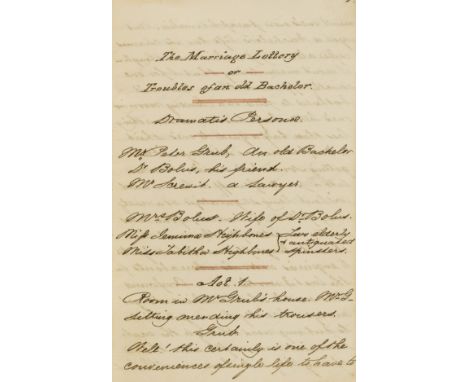 The Marriage Lottery
or
Troubles of an old Bachelor.
Dramatis Personæ
Mr. Peter Grub, An old Bachelor
Dr. Bolus, his friend.
Mr Screwit. a Lawyer.
Mrs Bolus. Wife of Dr. Bolus.
Miss Jemima Highbones { Two elderly
Miss Tabitha Highbones & antiquated spinsters.
Act. 1.
Room in Mr Grub's house. Mr G-
sitting mending his trousers.
Grub
Well! this certainly is one of the
conveniences of single life to have to